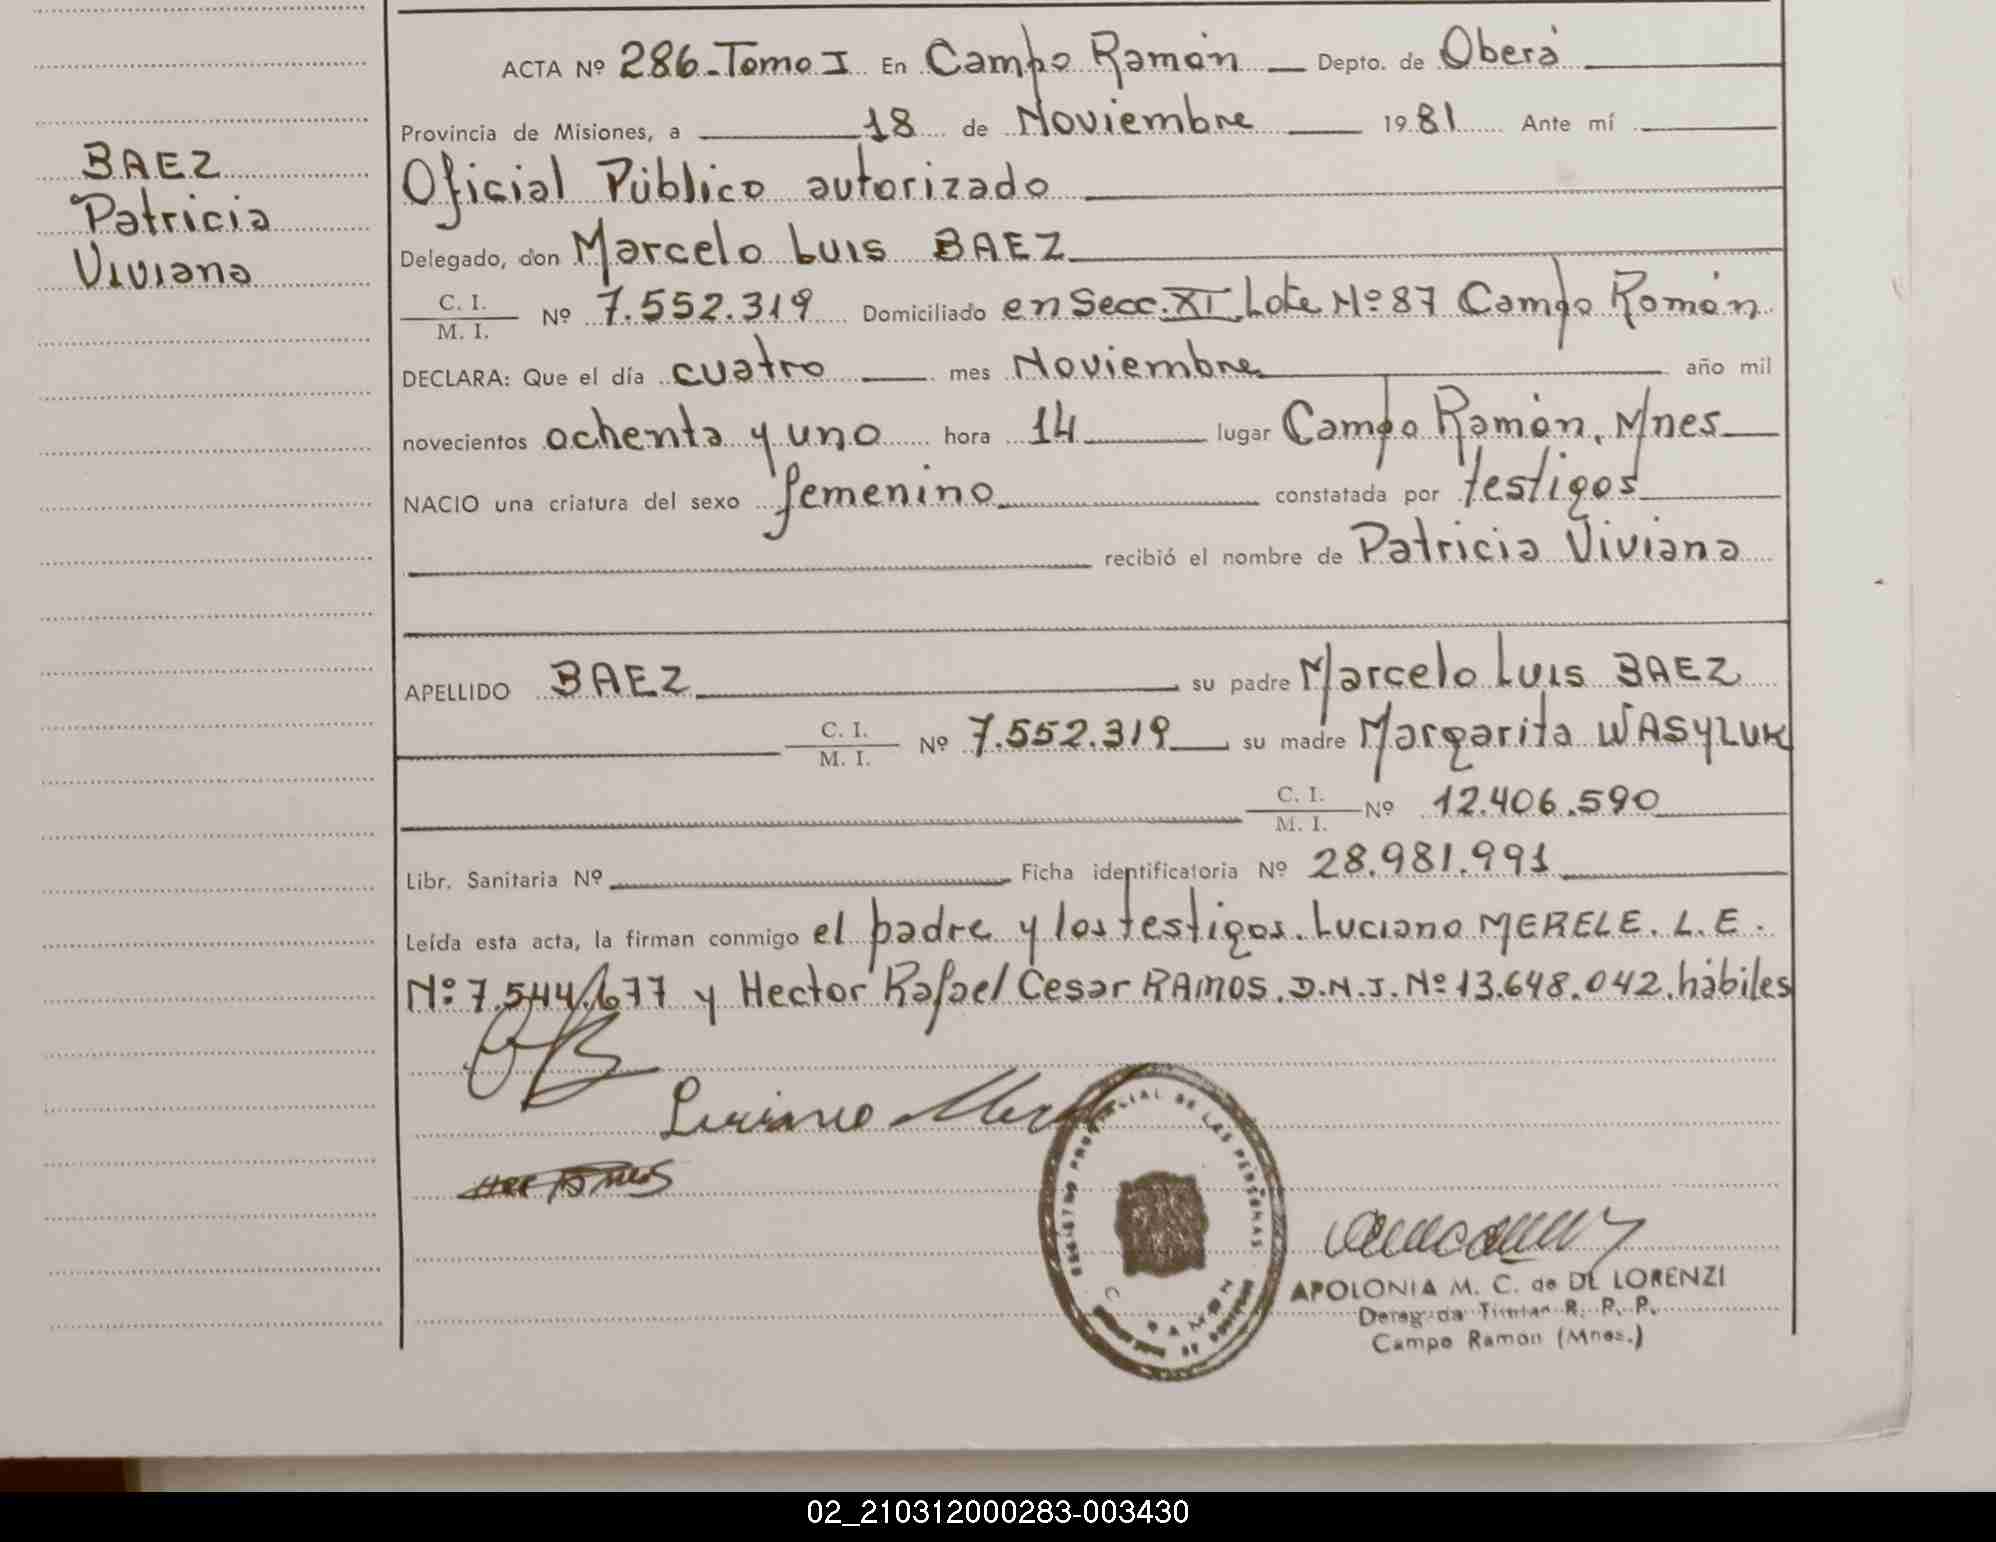 BAEZ
Patricia
Viviana
ACTA Nº 286-Tomo I En Campo Ramón Depto. de Oberá
Provincia de Misiones, a 18 de Noviembre 1981 Ante mí
Oficial Público autorizado
Delegado, don Marcelo Luis BAEZ
C. I.
M. I. Nº 7.552.319 Domiciliado en Secc. XI Lote Nº 87 Campo Ramón
DECLARA: Que el día cuatro mes Noviembre año mil
novecientos ochenta y uno hora 14 lugar Campo Ramón, Mnes
NACIO una criatura del sexo femenino constatada por testigos
recibió el nombre de Patricia Viviana
APELLIDO BAEZ su padre Marcelo Luis BAEZ
C. I.
M. I. Nº 7.552.319 su madre Margarita WASYLUK
C. I.
M. I. Nº 12.406.590
Libr. Sanitaria Nº Ficha identificatoria Nº 28.981.991
Leída esta acta, la firman conmigo el padre y los testigos. Luciano MERELE. L.E.
Nº 7.544.677 y Hector Rafael Cesar RAMOS. D.N.I. Nº 13.648.042. hábiles
Luciano
REGISTRO PROVINCIAL DE LAS PERSONAS
RAMON
APOLONIA M. C. de DE LORENZI
Delegada Titular R. P. P.
Campo Ramón (Mnes.)
02_210312000283-003430